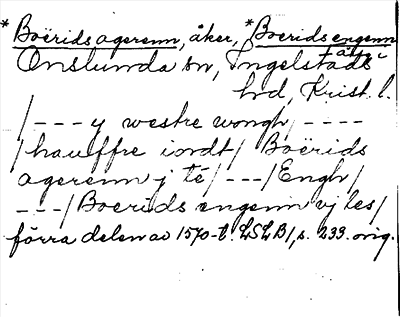 *Boërids agerenn, åker, *Boerids engenn
äng i
Onslunda sn, Ingelstads
hd, Krist. l.
/--- y westre wongh/----
/hauffre iordt/ Boërids
agerenn j té/---/Engh/
---/Boerids engenn vj les/
förra delen av 1570-t. LSLB1, s. 233. orig.